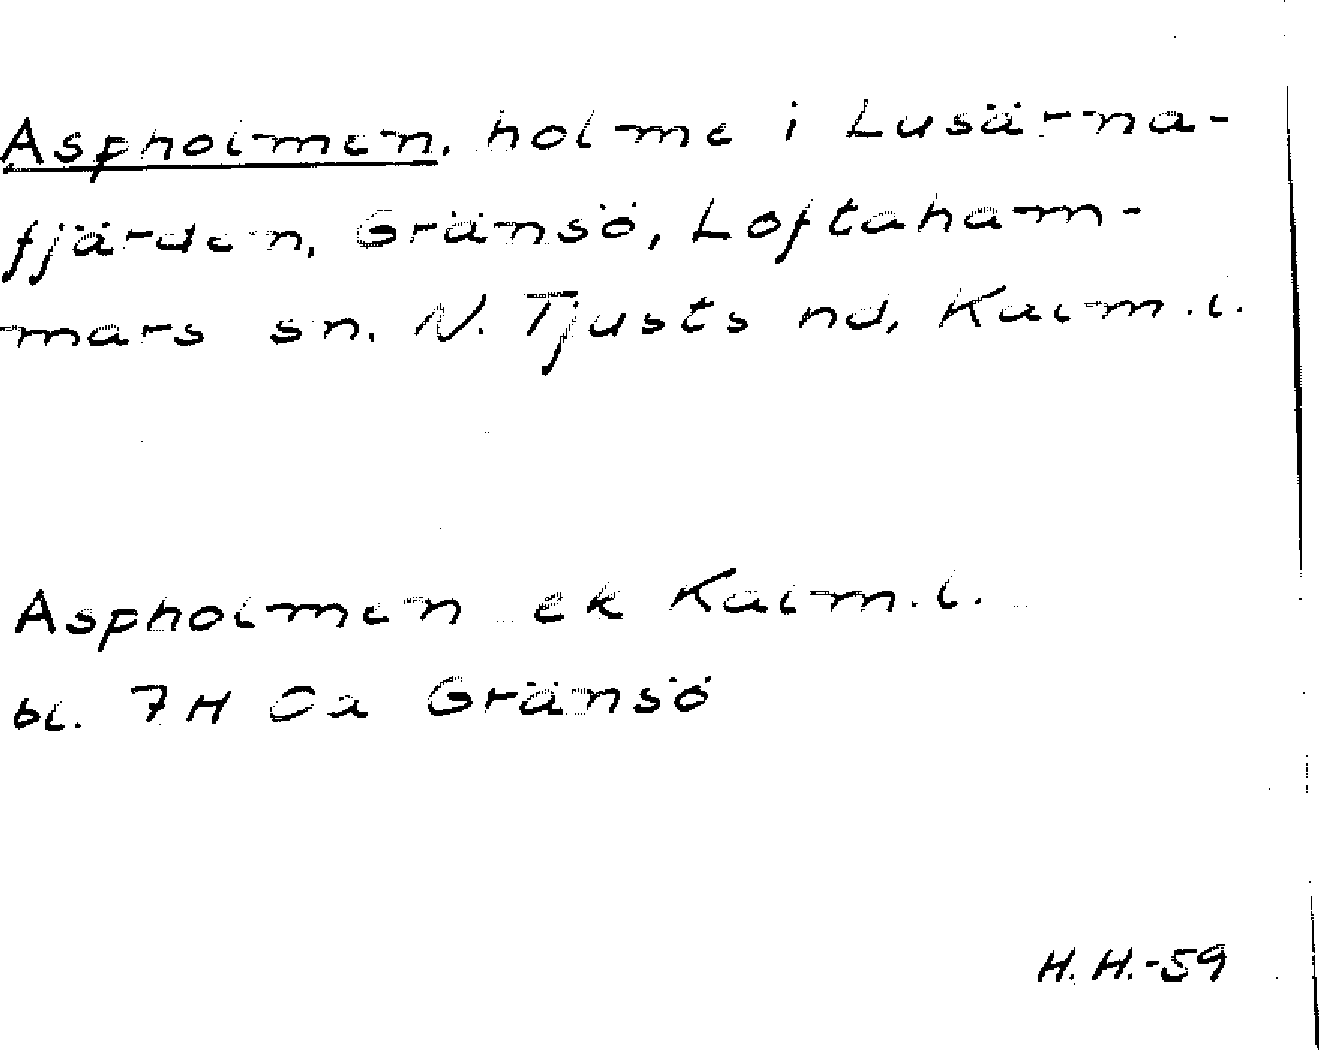 Aspholmen, holme i Lusärna-
fjärden, Gränsö, Loftaham-
mars sn. N. Tjusts hd, Kalm.l.
Aspholmen ek Kalm.l.
bl. 7H 0a Gränsö
H.H.-59